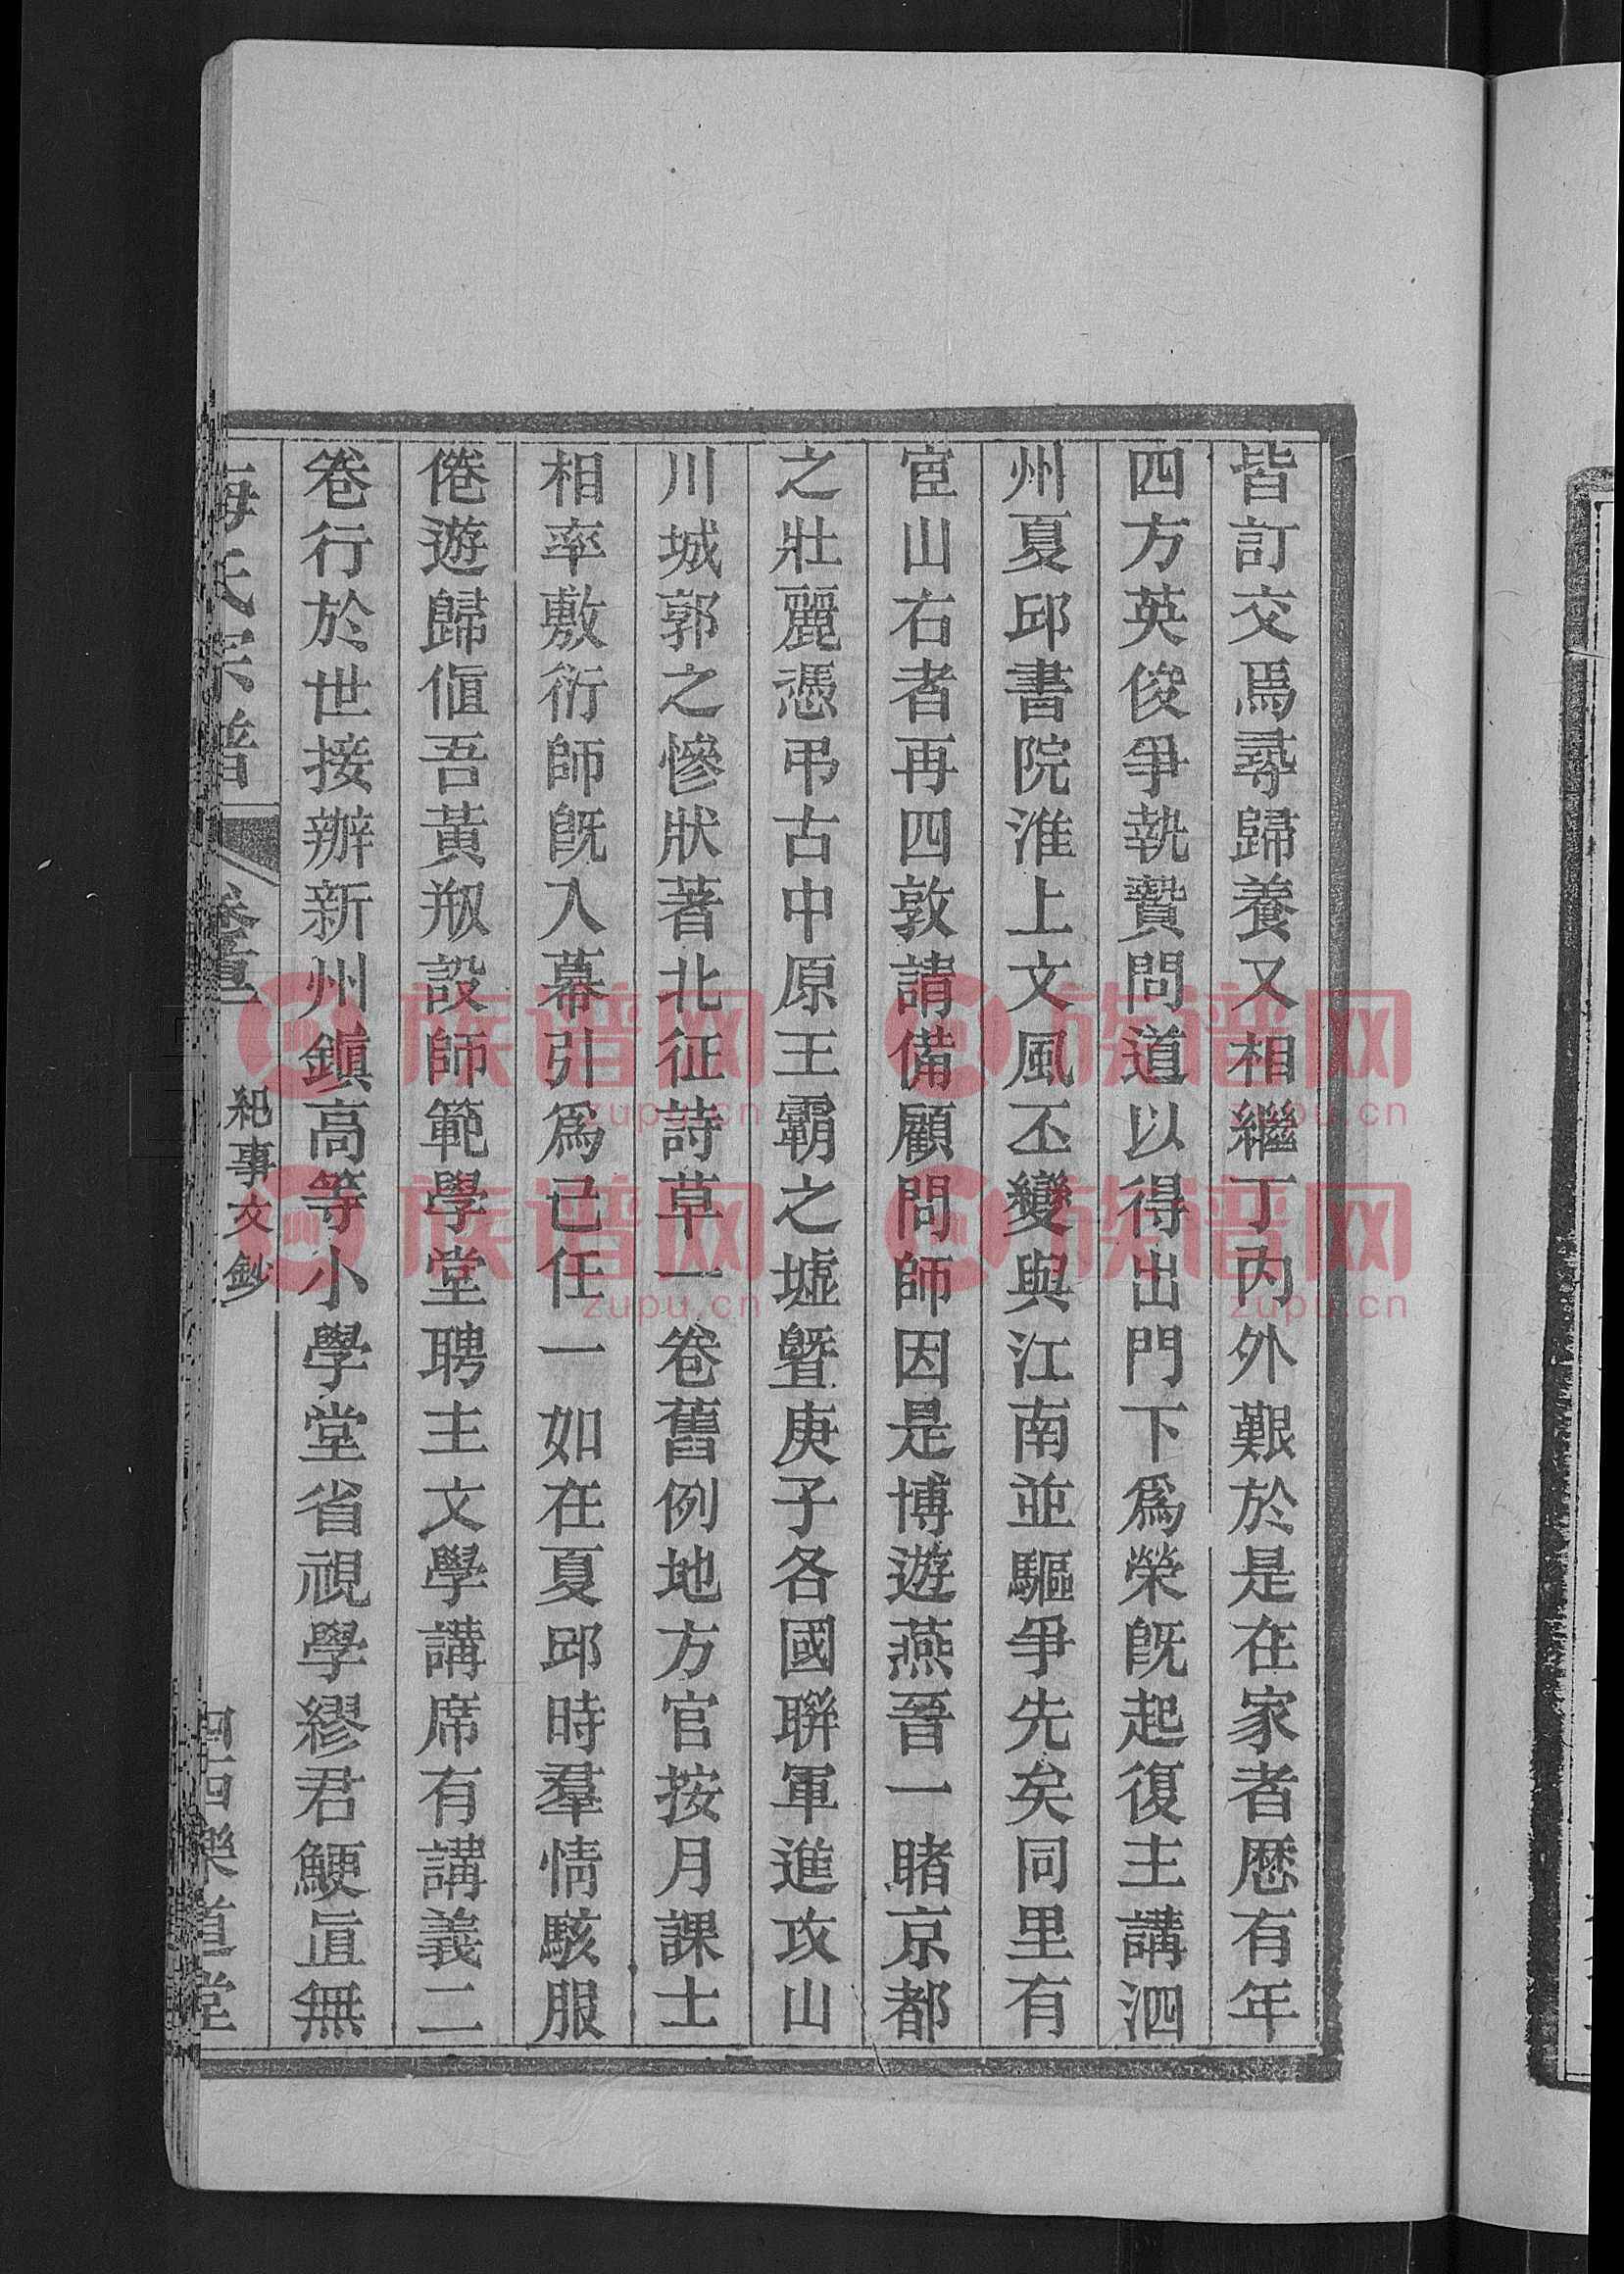 皆訂交焉尋歸養又相繼丁內外艱於是在家者歴有年
四方英俊爭執贄問道以得出門下爲榮旣起復主講泗
州夏邱書院淮上文風丕變與江南並驅爭先矣同里有
宦山右者再四敦請備顧問師因是博遊燕晉一睹京都
之壯麗憑弔古中原王霸之墟曁庚子各國聯軍進攻山
川城郭之慘狀著北征詩草一卷舊例地方官按月課士
相率敷衍師旣入幕引爲己任一如在夏邱時羣情駭服
倦遊歸值吾黃叛設師範學堂聘主文學講席有講義二
卷行於世接辦新州鎭高等小學堂省視學繆君鯁直無
氏宗譜
紀事文鈔
樂道堂
族谱网
zupu.cn
族谱网
zupu.cn
族谱网
zupu.cn
族谱网
zupu.cn